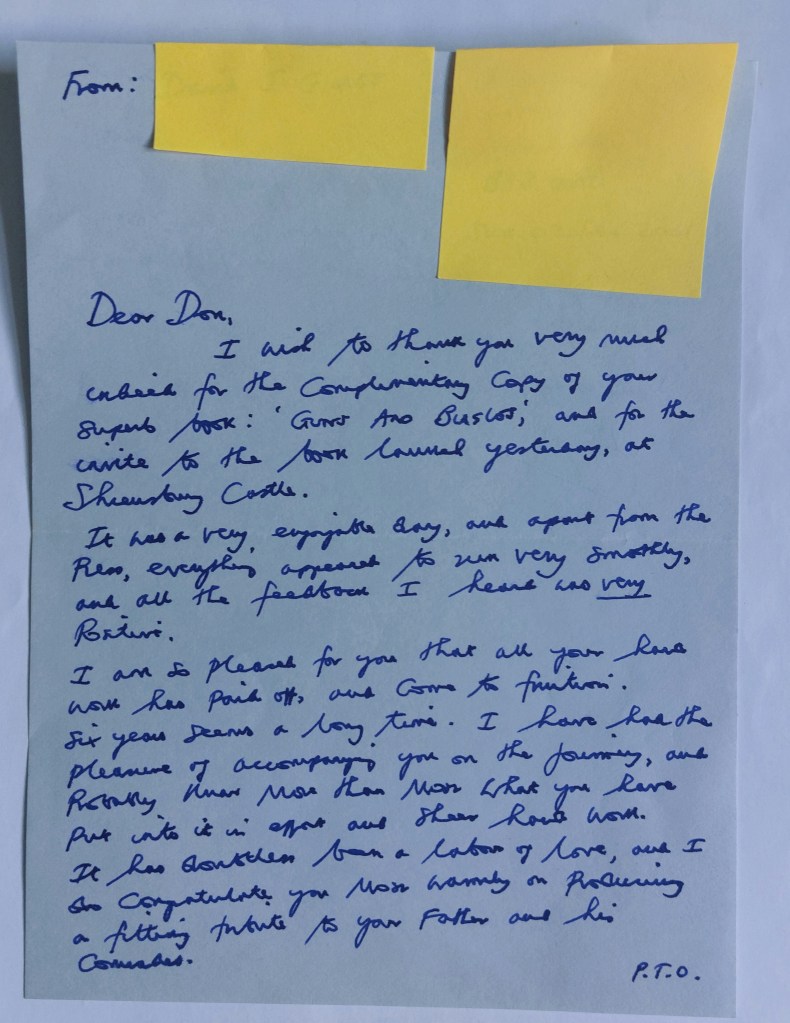 From:
Dear Don,
I wish to thank you very much
indeed for the Complimentary Copy of your
superb book: 'GUNS AND BUGLES', and for the
invite to the book launch yesterday, at
Shrewsbury Castle.
It was a very, enjoyable day, and apart from the
Press, everything appeared to run very smoothly,
and all the feedback I heard was very
Positive.
I am so pleased for you that all your hard
work has paid off, and come to fruition.
Six years seems a long time. I have had the
pleasure of accompanying you on the journey, and
Probably know more than most what you have
put into it in effort and sheer hard work.
It has doubtless been a labour of love, and I
do Congratulate you most warmly on Producing
a fitting tribute to your Father and his
Comrades.
P.T.O.